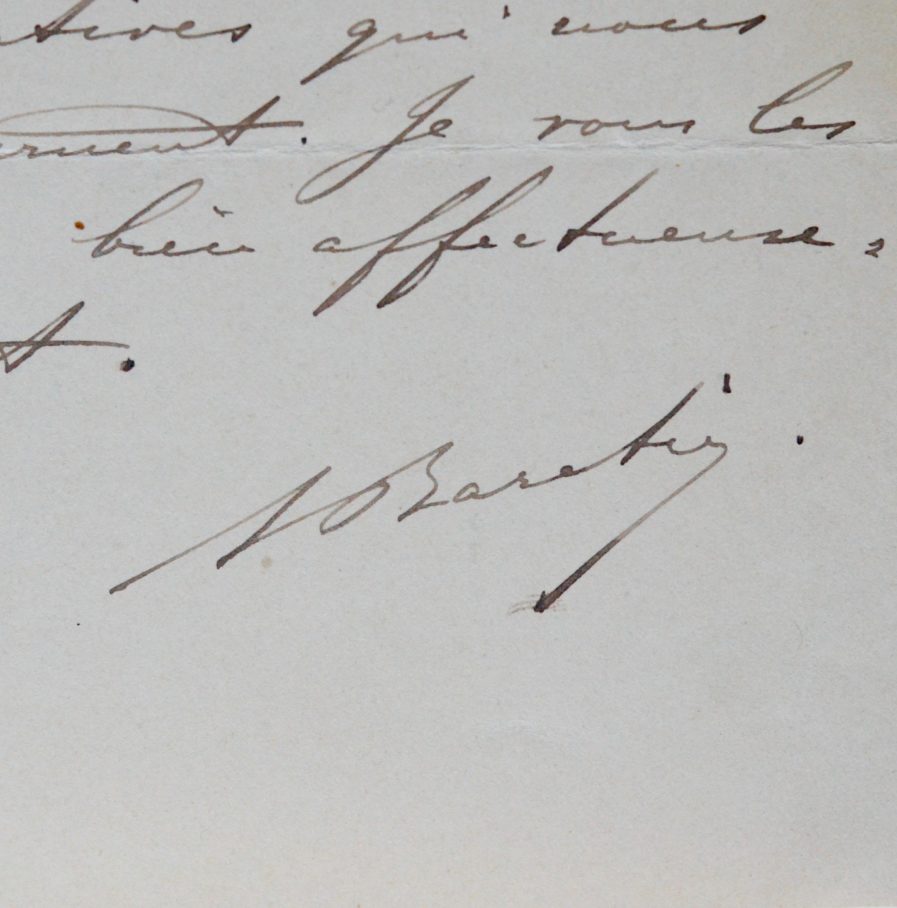 tives qui nous
ement. Je vous les
bien affectueuse-
t.
Baretin.